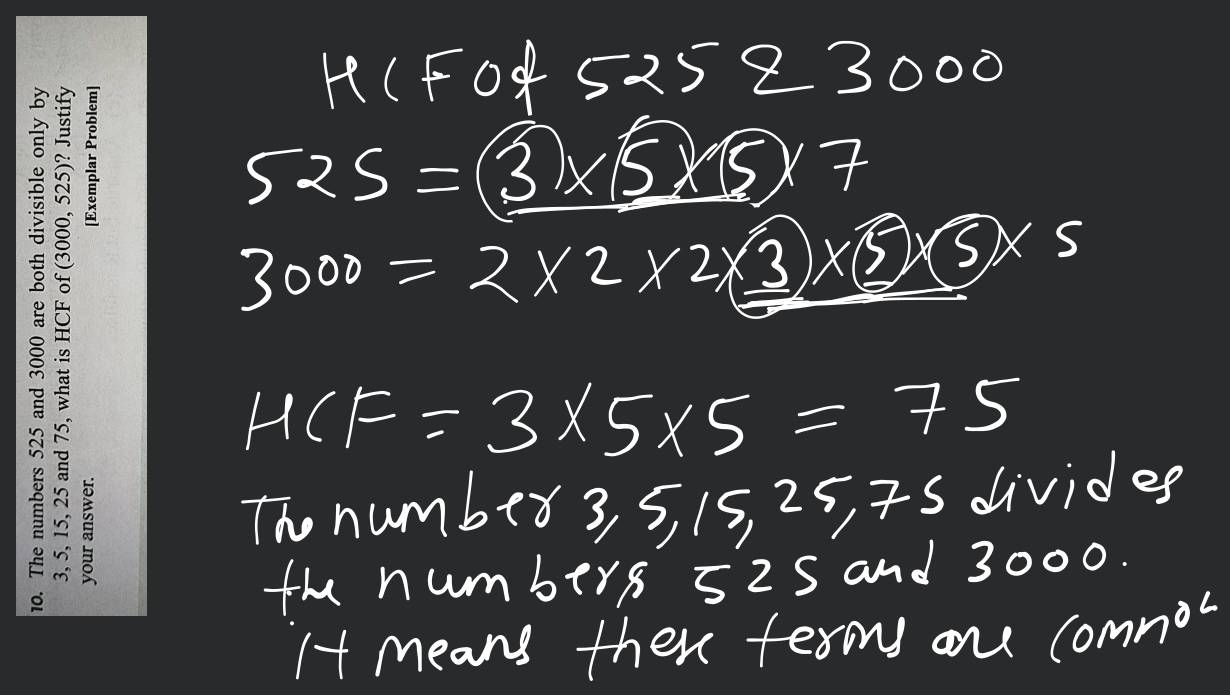 10. The numbers 525 and 3000 are both divisible only by
3, 5, 15, 25 and 75, what is HCF of (3000, 525)? Justify
your answer. [Exemplar Problem]
HCF of 525 & 3000
525 = 3 × 5 × 5 × 7
3000 = 2 × 2 × 2 × 3 × 5 × 5 × 5
HCF = 3 × 5 × 5 = 75
The number 3, 5, 15, 25, 75 divides
the numbers 525 and 3000.
it means these terms are common